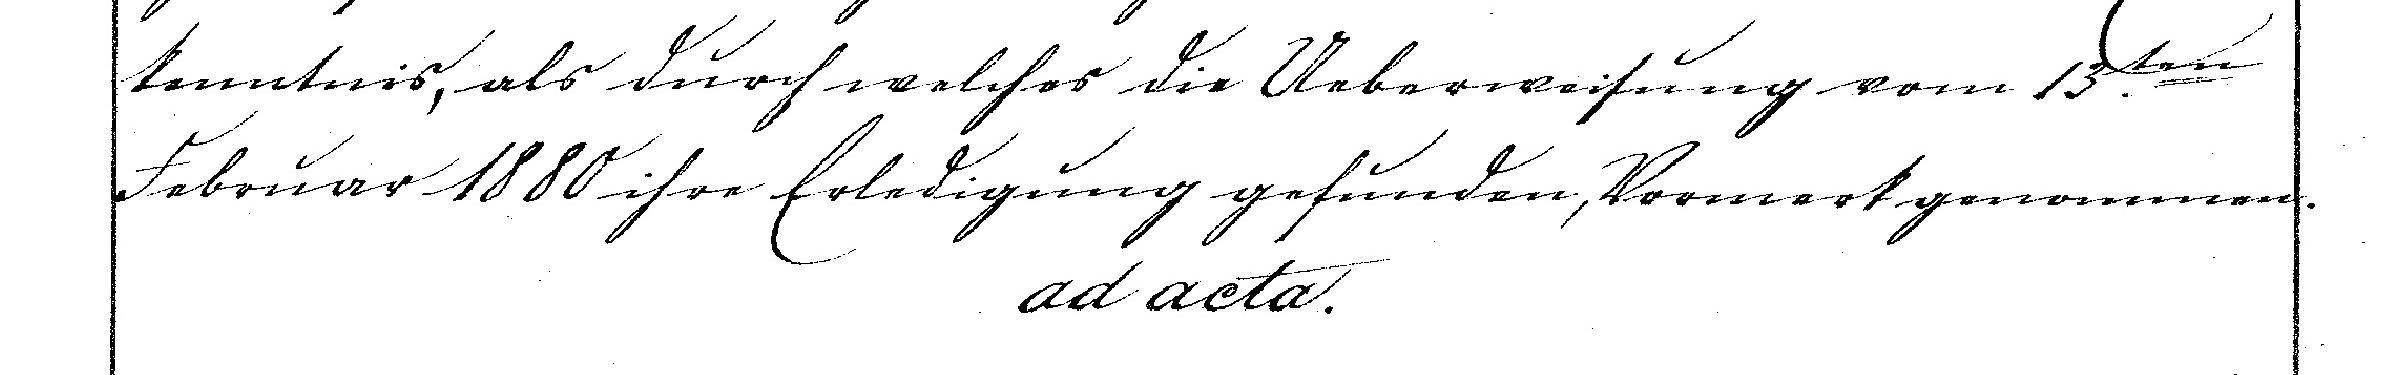 kenntnis, als durch welches die Ueberweisung vom 13.ten
Februar 1880 ihre Erledigung gefunden, Vormerk genommen.
ad acta.